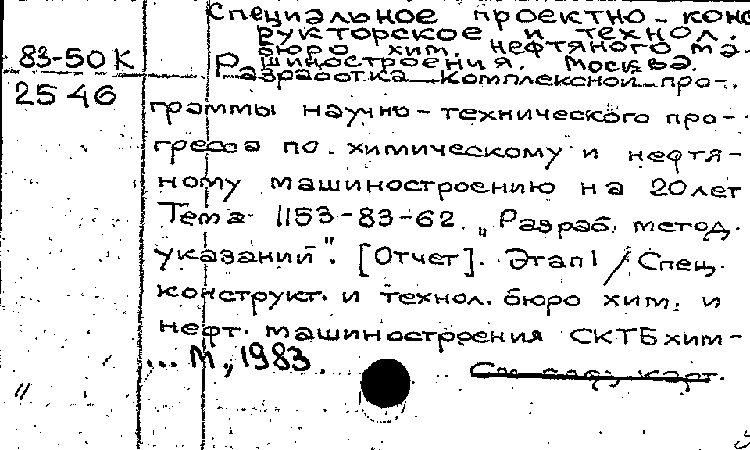 Специальное проектно-конс
рукторское и технол.
бюро хим. нефтяного ма-
83-50К
шиностроения. Москва.
Разработка комплексной про-
25 46
граммы научно-технического про-
гресса по химическому и нефтя-
ному машиностроению на 20 лет
Тема 1153-83-62. „Разраб. метод.
указаний". [Отчет]. Этап 1 / Спец.
конструкт. и технол. бюро хим. и
нефт. машиностроения СКТБхим-
... М., 1983.
См. след. карт.
"